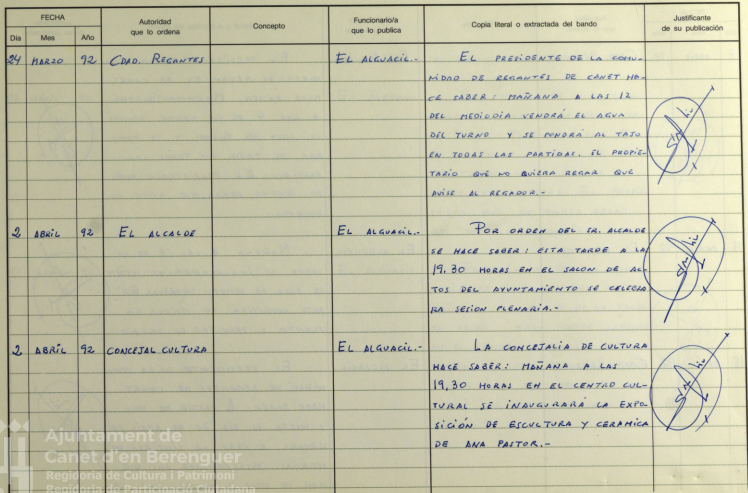 FECHA
Día Mes Año
Autoridad
que lo ordena
Concepto
Funcionario/a
que lo publica
Copia literal o extractada del bando
Justificante
de su publicación
24 MARZO 92 CDAD. REGANTES EL ALGUACIL.- EL PRESIDENTE DE LA COMU-
NIDAD DE REGANTES DE CANET HA-
CE SABER: MAÑANA A LAS 12
DEL MEDIODIA VENDRÁ EL AGUA
DEL TURNO Y SE PONDRÁ AL TAJO
EN TODAS LAS PARTIDAS. EL PROPIE-
TARIO QUE NO QUIERA REGAR QUE
AVISE AL REGADOR.-
2 ABRIL 92 EL ALCALDE EL ALGUACIL.- POR ORDEN DEL SR. ALCALDE
SE HACE SABER: ESTA TARDE A LA
19.30 HORAS EN EL SALON DE AC-
TOS DEL AYUNTAMIENTO SE CELEBRA
RA SESION PLENARIA.-
2 ABRIL 92 CONCEJAL CULTURA EL ALGUACIL.- LA CONCEJALIA DE CULTURA
HACE SABER: MAÑANA A LAS
19,30 HORAS EN EL CENTRO CUL-
TURAL SE INAUGURARÁ LA EXPO-
SICIÓN DE ESCULTURA Y CERAMICA
DE ANA PASTOR.-
Ajuntament de
Canet d'en Berenguer
Regidoria de Cultura i Patrimoni
Regidoria de Participació Ciutadana